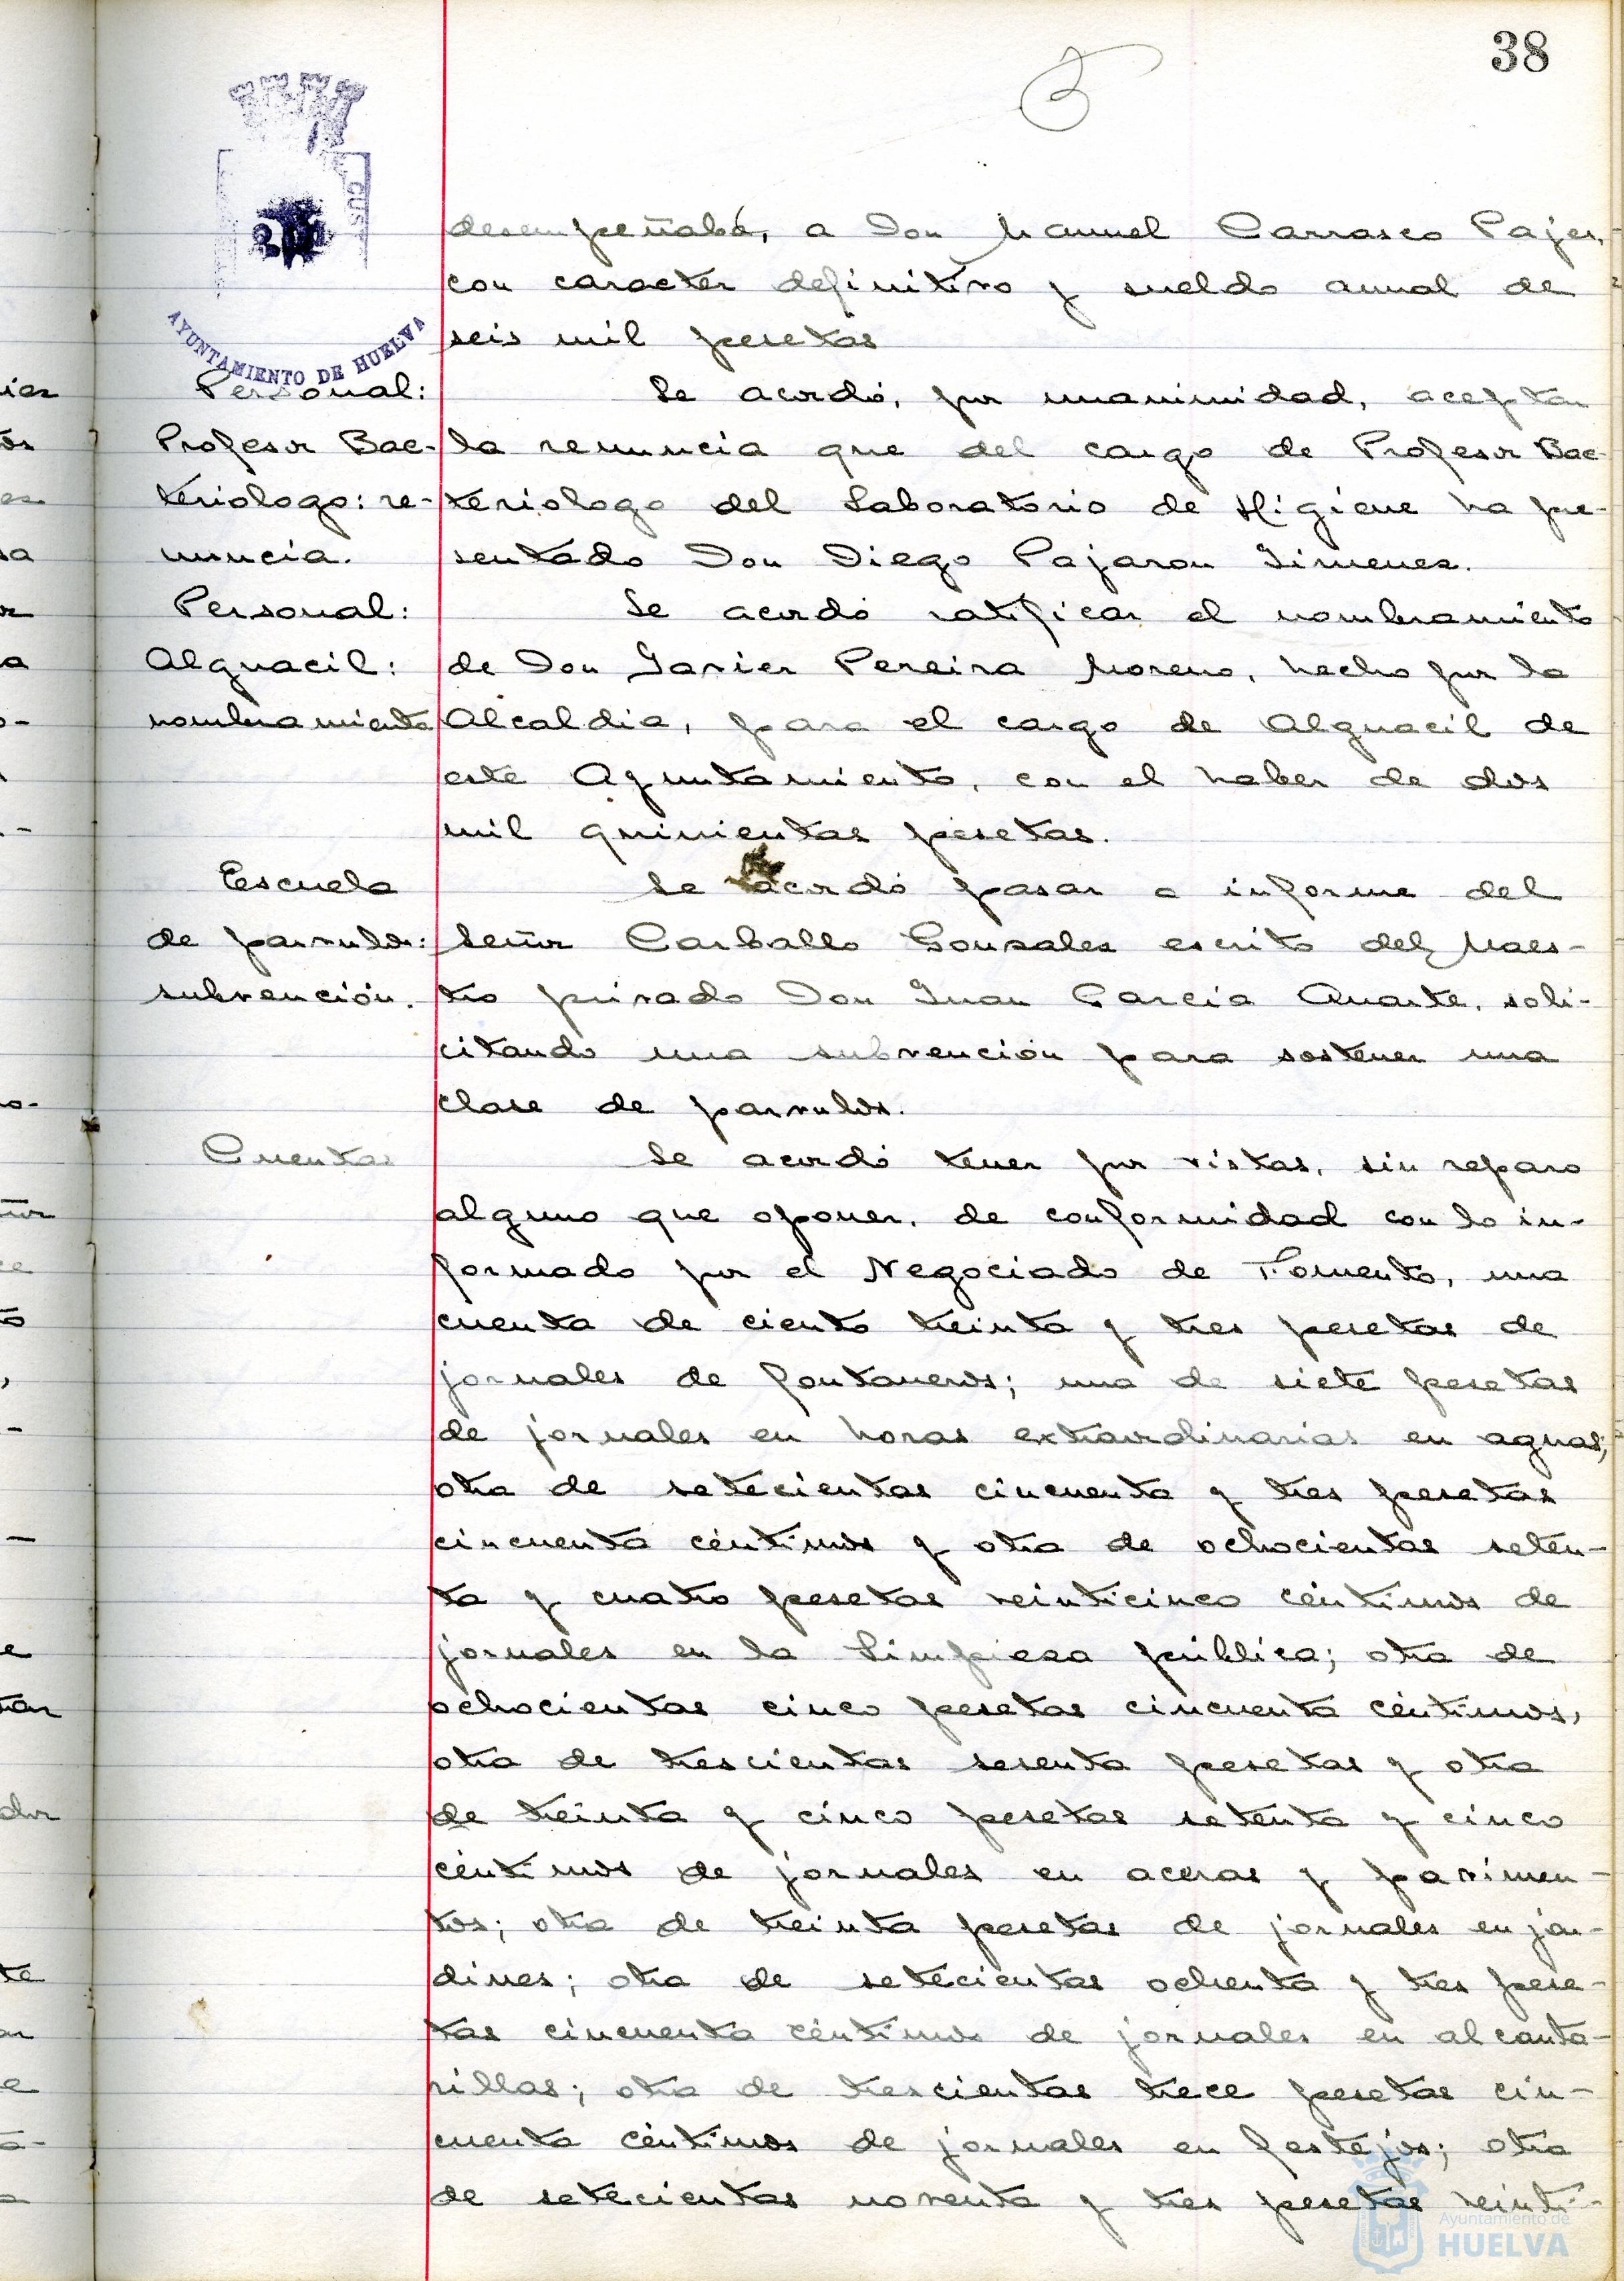 38
AYUNTAMIENTO DE HUELVA
desempeñaba, a Don Manuel Carrasco Pajes,
con caracter definitivo y sueldo anual de
seis mil pesetas
Personal:
Profesor Bac-
teriologo: re-
nuncia.
Se acordó, por unanimidad, aceptar
la renuncia que del cargo de Profesor Bac-
teriologo del Laboratorio de Higiene ha pre-
sentado Don Diego Pajaron Jimenez.
Personal:
Alguacil:
nombramiento
Se acordó ratificar el nombramiento
de Don Javier Pereira Moreno, hecho por la
Alcaldia, para el cargo de Alguacil de
este Ayuntamiento, con el haber de dos
mil quinientas pesetas.
Escuela
de parvulos:
subvención.
Se acordó pasar a informe del
Señor Carballo Gonzalez escrito del Maes-
tro privado Don Juan Garcia Quarte, soli-
citando una subvención para sostener una
clase de parvulos.
Cuentas
Se acordó tener por vistas, sin reparo
alguno que oponer, de conformidad con lo in-
formado por el Negociado de Fomento, una
cuenta de ciento treinta y tres pesetas de
jornales de fontaneros; una de siete pesetas
de jornales en horas extraordinarias en aguas;
otra de setecientas cincuenta y tres pesetas
cincuenta céntimos y otra de ochocientas seten-
ta y cuatro pesetas veinticinco céntimos de
jornales en la Limpieza pública; otra de
ochocientas cinco pesetas cincuenta céntimos,
otra de trescientas sesenta pesetas y otra
de treinta y cinco pesetas setenta y cinco
céntimos de jornales en aceras y pavimen-
tos; otra de treinta pesetas de jornales en jar-
dines; otra de setecientas ochenta y tres pese-
tas cincuenta céntimos de jornales en alcanta-
rillas; otra de trescientas trece pesetas cin-
cuenta céntimos de jornales en festejos; otra
de setecientas noventa y tres pesetas veinti-
Ayuntamiento de
HUELVA